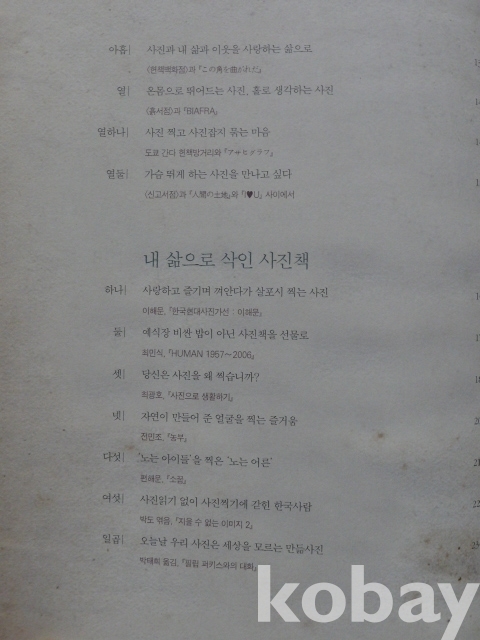 아홉| 사진과 내 삶과 이웃을 사랑하는 삶으로
〈헌책백화점〉과 『この角を曲がれた』
열| 온몸으로 뛰어드는 사진, 홀로 생각하는 사진
〈흙서점〉과 『BIAFRA』
열하나| 사진 찍고 사진잡지 묶는 마음
도쿄 간다 헌책방거리와 『アサヒグラフ』
열둘| 가슴 뛰게 하는 사진을 만나고 싶다
〈신고서점〉과 『人間の土地』와 『I♥U』 사이에서
내 삶으로 삭인 사진책
하나| 사랑하고 즐기며 껴안다가 살포시 찍는 사진
이해문, 『한국현대사진가선 : 이해문』
둘| 예식장 비싼 밥이 아닌 사진책을 선물로
최민식, 『HUMAN 1957~2006』
셋| 당신은 사진을 왜 찍습니까?
최광호, 『사진으로 생활하기』
넷| 자연이 만들어 준 얼굴을 찍는 즐거움
전민조, 『농부』
다섯| '노는 아이들'을 찍은 '노는 어른'
편해문, 『소꿉』
여섯| 사진읽기 없이 사진찍기에 갇힌 한국사람
박도 엮음, 『지울 수 없는 이미지 2』
일곱| 오늘날 우리 사진은 세상을 모르는 만듦사진
박태희 옮김, 『필립 퍼키스와의 대화』
kobay